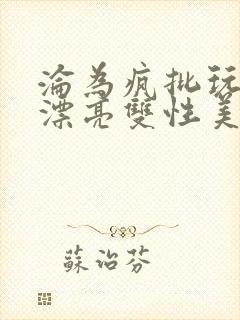 淪為瘋批玩
漂亮雙性美
蘇治芬